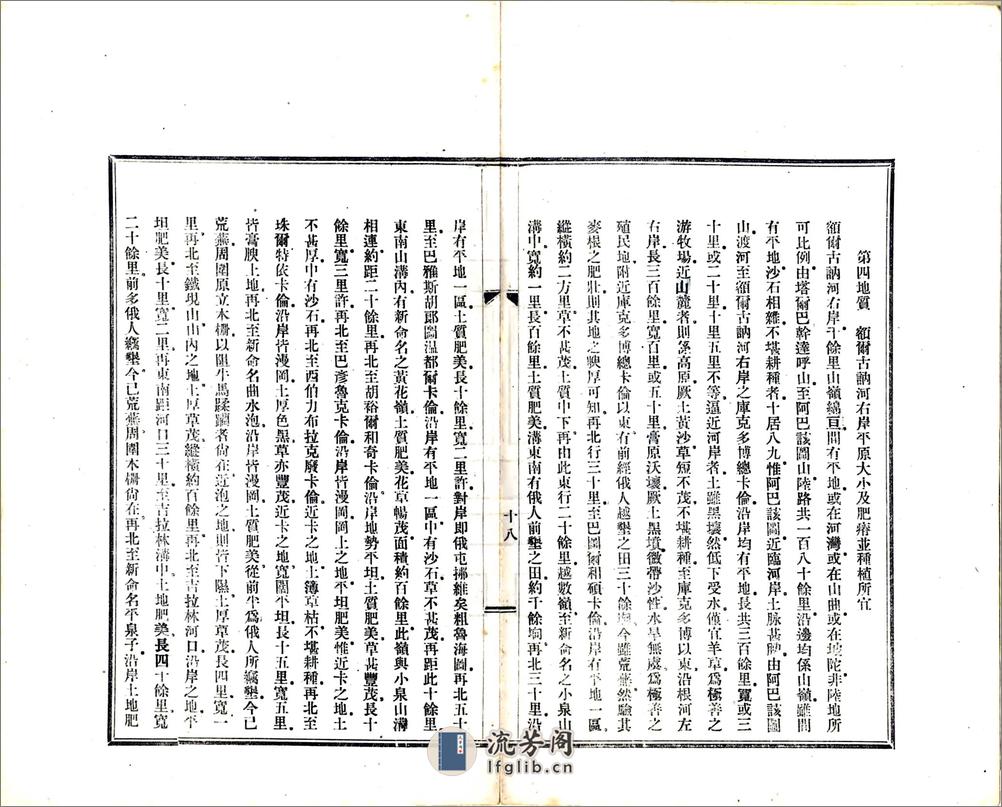 第四地質　額爾古訥河右岸平原大小及肥瘠並種植所宜
額爾古訥河右岸千餘里山嶺綿亘間有平地或在河灣或在山曲或在坡陀非陸地所
可比例由塔爾巴幹達呼山至阿巴該圖山陸路共一百八十餘里沿邊均係山嶺雖間
有平地沙石相雜不堪耕種者十居八九惟阿巴該圖近臨河岸土脉甚腴由阿巴該圖
山渡河至額爾古訥河右岸之庫克多博總卡倫沿岸均有平地長共三百餘里寬或三
十里或二十里十里五里不等逼近河岸者土雖黑壤然低下受水僅宜羊草爲極善之
游牧場近山麓者則係高原厥土黃沙草短不茂不堪耕種至庫克多博以東沿根河左
右岸長三百餘里寬百里或五十里膏原沃壤厥土黑墳微帶沙性水旱無虞爲極善之
殖民地附近庫克多博總卡倫以東有前經俄人越墾之田三十餘坰今雖荒蕪然驗其
麥根之肥壯則其地之腴厚可知再北行三十里至巴圖爾和碩卡倫沿岸有平地一區
縱橫約二方里草不甚茂土質中下再由此東行二十餘里越數嶺至新命名之小泉山
溝中寬約一里長百餘里土質肥美溝東南有俄人前墾之田約千餘坰再北三十里沿
十八
岸有平地一區土質肥美長十餘里寬二里許對岸即俄屯擄維矣粗魯海圖再北五十
里至巴雅斯胡郎圖温都爾卡倫沿岸有平地一區中有沙石草不甚茂再距此十餘里
東南山溝內有新命名之黃花嶺土質肥美花草暢茂面積約百餘里此嶺與小泉山溝
相連約距二十餘里再北至胡裕爾和奇卡倫沿岸地勢平坦土質肥美草甚豐茂長十
餘里寬三里許再北至巴彥魯克卡倫沿岸皆漫岡岡上之地平坦肥美惟近卡之地土
不甚厚中有沙石再北至西伯力布拉克廢卡倫近卡之地土薄草枯不堪耕種再北至
珠爾特依卡倫沿岸皆漫岡土厚色黑草亦豐茂近卡之地寬闊平坦長十五里寬五里
皆膏腴土地再北至新命名曲水泡沿岸皆漫岡土質肥美從前半爲俄人所竊墾今已
荒蕪周圍原立木柵以阻牛馬蹂躪者尙在近泡之地則皆下隰土厚草茂長四里寬一
里再北至鐵現山山內之地土厚草茂縱橫約百餘里再北至吉拉林河口沿岸之地平
坦肥美長十里寬二里再東南距河口三十里至吉拉林溝中土地肥美長四十餘里寬
二十餘里前多俄人竊墾今已荒蕪周圍木柵尙在再北至新命名平泉子沿岸土地肥
流芳阁
lfglib.cn